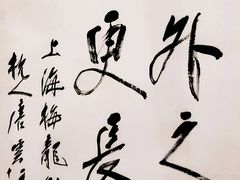 外之
更長
上海梅龍
杭人唐雲